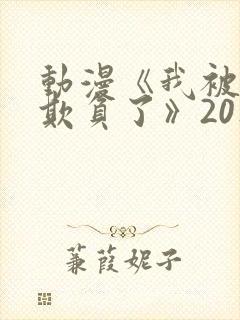 動漫《我被
欺負了》20
蒹葭妮子